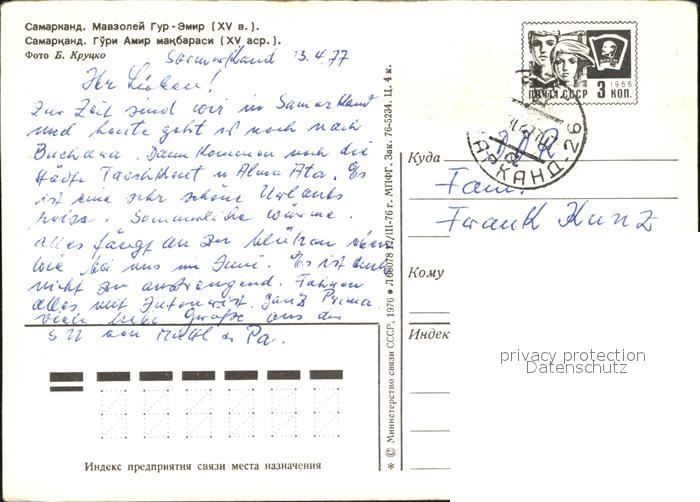 Самарканд. Мавзолей Гур-Эмир (XV в.).
Самарқанд. Гўри Амир мақбараси (XV аср.).
Фото Б. Круцко
Samarkand 3.4.77
Ihr Lieben!
Zur Zeit sind wir in Samarkand
und heute geht es noch nach
Buchara. Dann kommen noch die
Städte Taschkent u Alma Ata. Es
ist eine sehr schöne Urlaubs
reise. Sommerliche Wärme.
alles fängt an zu blühen eben
wie bei uns im Juni. Es ist auch
nicht zu anstrengend. Fahren
alles mit Intourist. Ganz Prima
viele liebe Grüße aus der
SU von & Pa.
Индекс предприятия связи места назначения
* © Министерство связи СССР, 1976 • 12/III-76 г. МПФГ. Зак. 76-5234. Ц. 4 к.
ПОЧТА СССР
1966
3 коп.
АРКАНД-26
Куда
DDR
Fam.
Frank Kunz
Кому
Индекс
privacy protection
Datenschutz